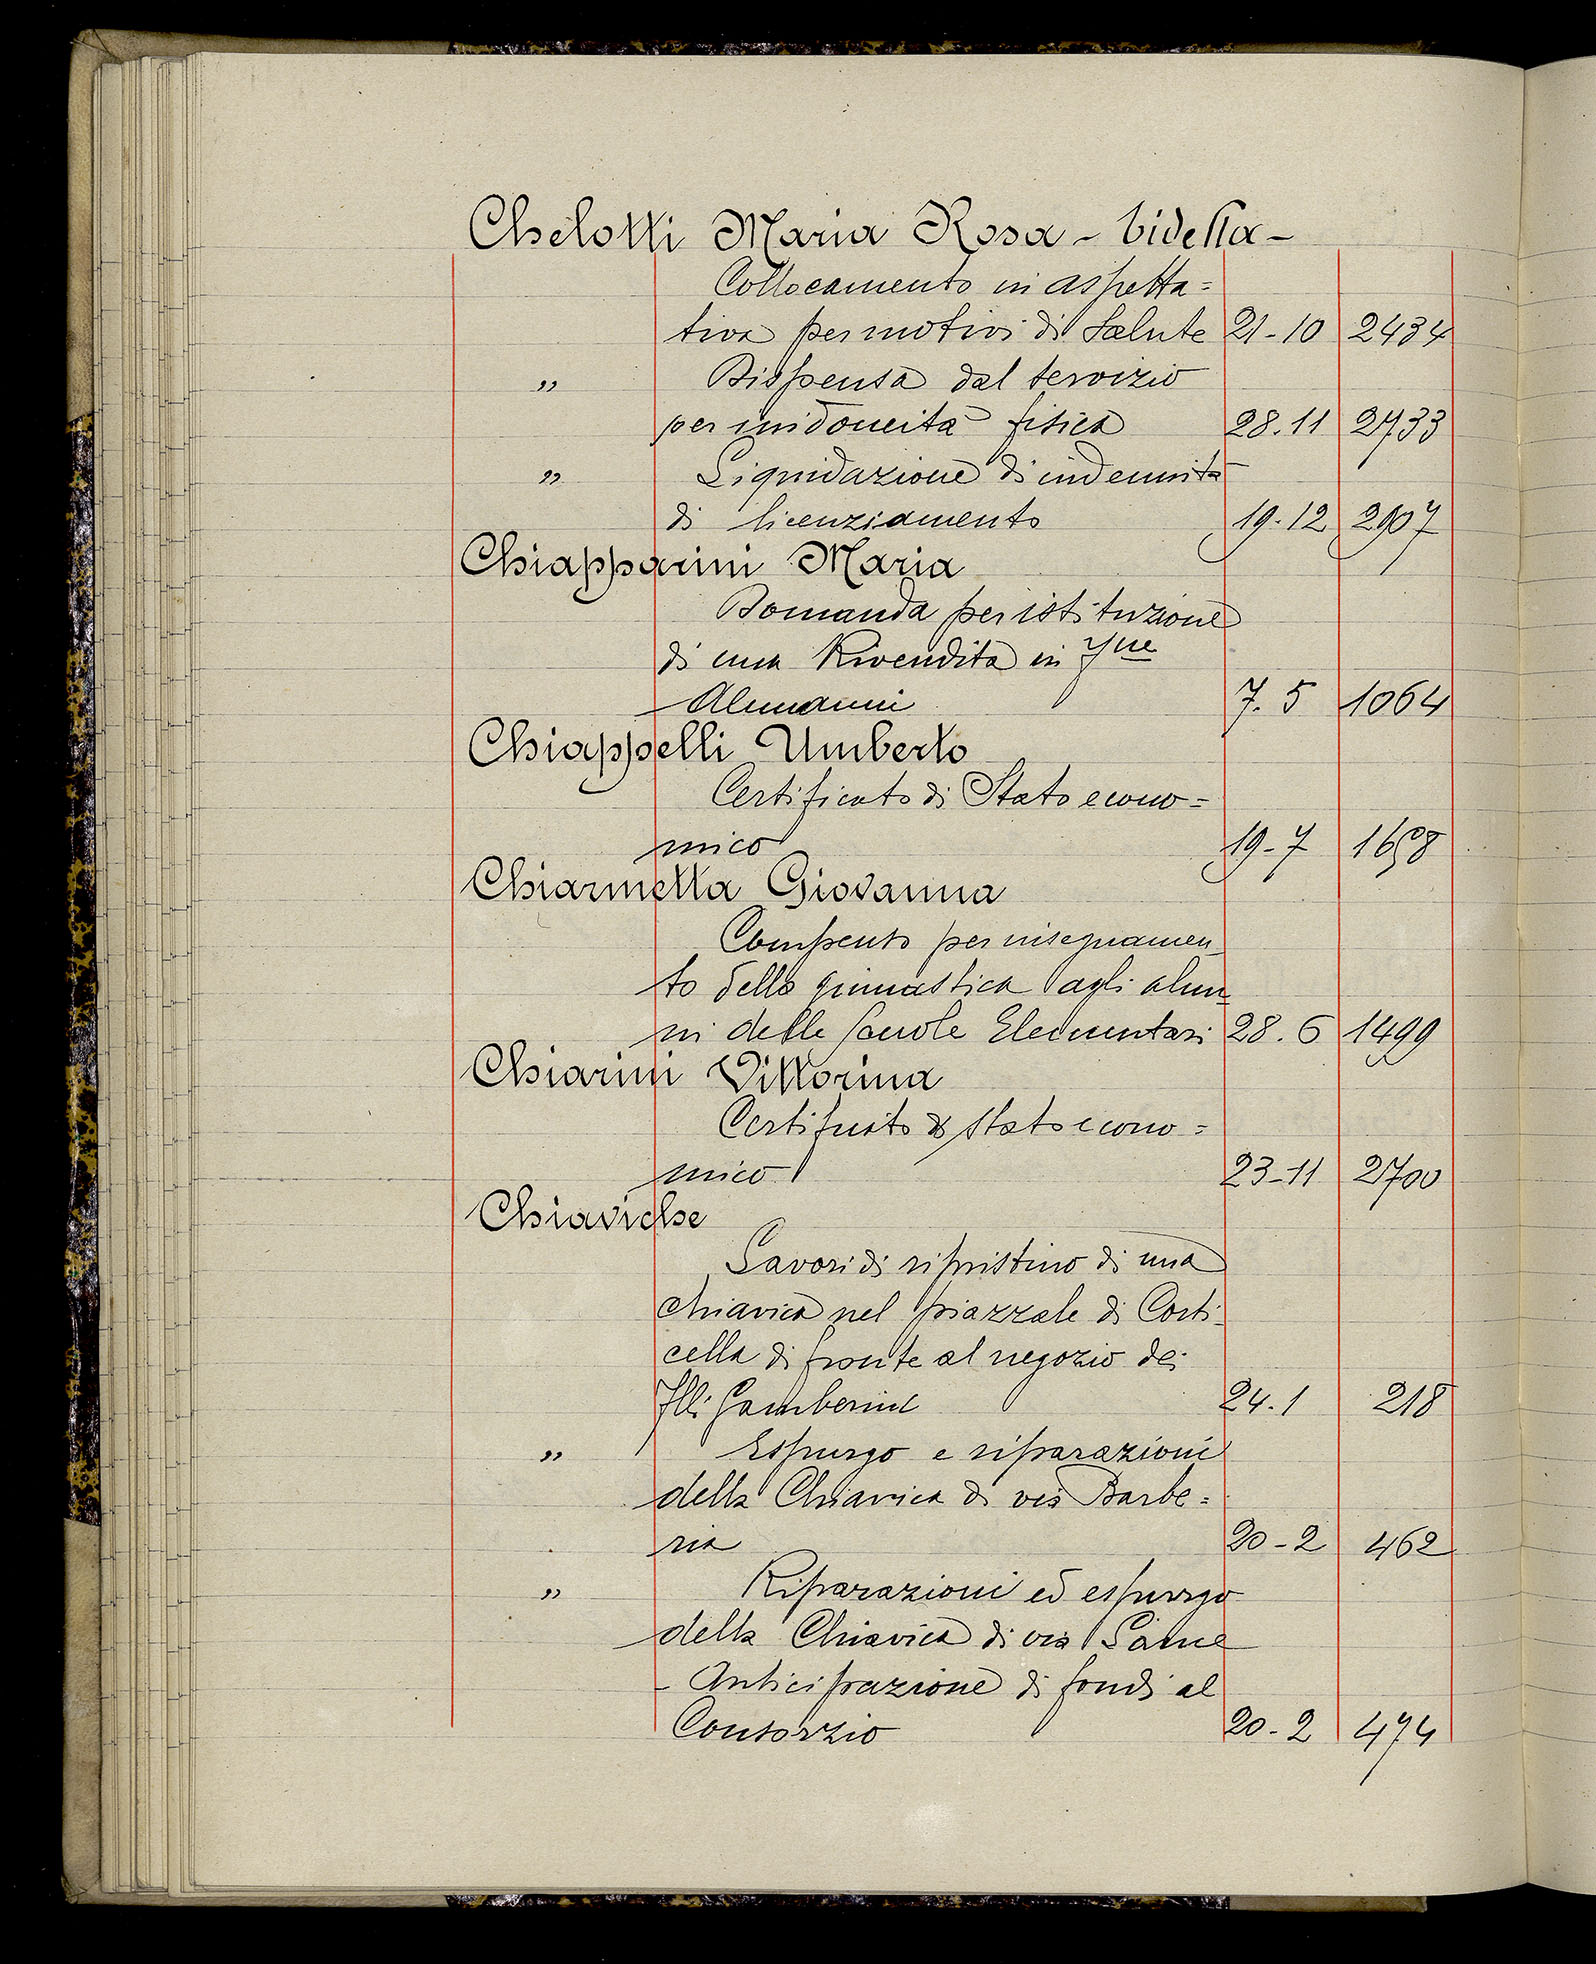 Chelotti Maria Rosa - bidella -
Collocamento in aspetta=
tiva per motivi di Salute 21-10 2434
" Dispensa dal servizio
per inidoneità fisica 28.11 2733
" Liquidazione di indennità
di licenziamento 19-12 2907
Chiapparini Maria
Domanda per istituzione
di una Rivendita in
Alemanni 7.5 1064
Chiappelli Umberto
Certificato di Stato econo=
mico 19-7 1658
Chiarmetta Giovanna
Compenso per insegnamen
to della ginnastica agli alun
ni delle Scuole Elementari 28.6 1499
Chiarini Vittorina
Certificato di stato econo=
mico 23-11 2700
Chiaviche
Lavori di ripristino di una
chiavica nel piazzale di Corti
cella di fronte al negozio dei
Flli Gamberini 24.1 218
" Espurgo e riparazioni
della Chiavica di via Barbe=
ria 20-2 462
" Riparazioni ed espurgo
della Chiavica di via Lame
- Anticipazione di fondi al
Consorzio 20-2 474